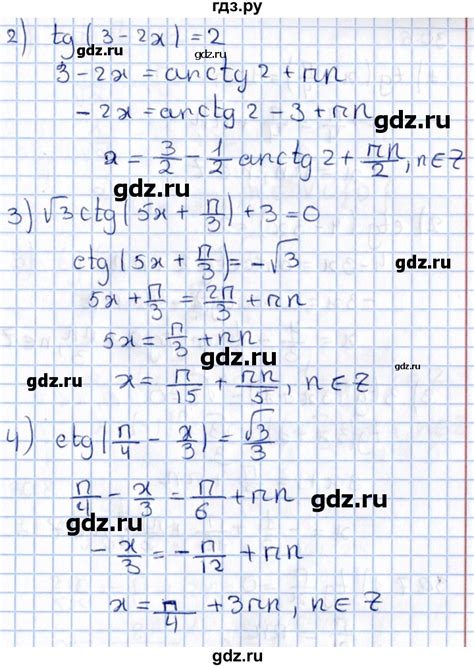 гдз.ру
2) tg(3 - 2x) = 2
3 - 2x = arctg 2 + πn
- 2x = arctg 2 - 3 + πn
gdz.ru
x = 3/2 - 1/2 arctg 2 + πn/2, n ∈ Z
gdz.ru
3) √3 ctg(5x + π/3) + 3 = 0
ctg(5x + π/3) = -√3
gdz.ru
5x + π/3 = 2π/3 + πn
5x = π/3 + πn
gdz.ru
gdz.ru
x = π/15 + πn/5, n ∈ Z
gdz.ru
4) ctg(π/4 - x/3) = √3/3
gdz.ru
π/4 - x/3 = π/6 + πn
gdz.ru
- x/3 = - π/12 + πn
gdz.ru
x = π/4 + 3πn, n ∈ Z
gdz.ru